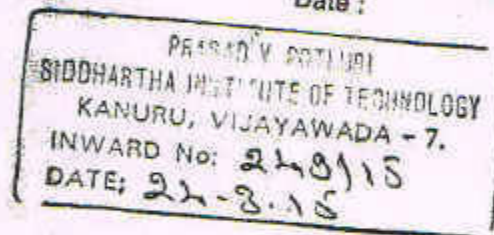 Date :
PRASAD V POTLURI
SIDDHARTHA INSTITUTE OF TECHNOLOGY
KANURU, VIJAYAWADA - 7.
INWARD No:
DATE: